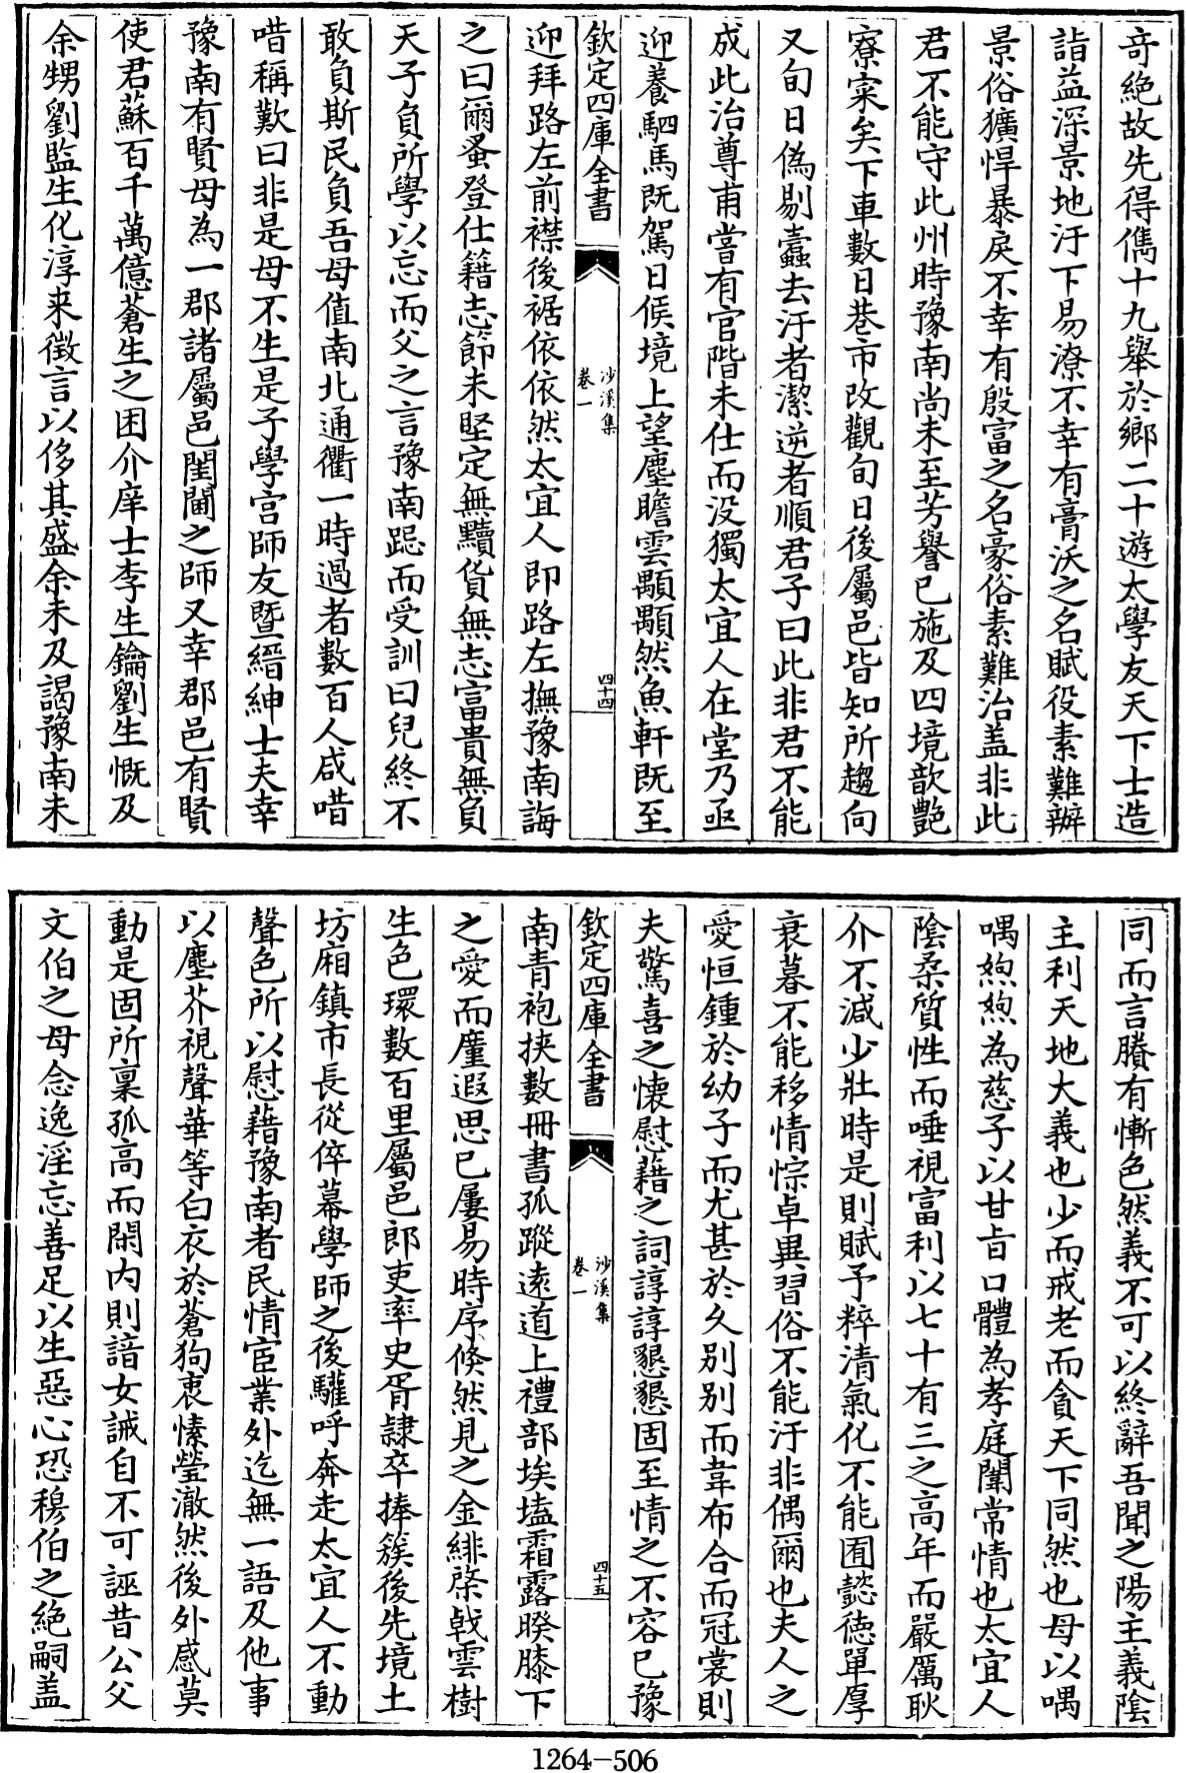 奇絶故先得儁十九舉於鄉二十遊太學友天下士造
詣益深景地汙下易潦不幸有膏沃之名賦役素難辦
景俗獷悍暴戾不幸有殷富之名豪俗素難治盖非此
君不能守此州時豫南尚未至芳譽已施及四境歆艷
寮寀矣下車數日巷市改觀旬日後屬邑皆知所趨向
又旬日偽剔蠧去汙者潔逆者順君子曰此非君不能
成此治尊甫當有官階未仕而没獨太宜人在堂乃亟
迎養駟馬既駕日候境上望塵瞻雲顒顒然魚軒既至
欽定四庫全書
沙溪集
卷一
四十四
迎拜路左前襟後裾依依然太宜人即路左撫豫南誨
之曰爾蚤登仕籍志節未堅定無黷貨無志富貴無負
天子負所學以忘而父之言豫南跽而受訓曰兒終不
敢負斯民負吾母值南北通衢一時過者數百人咸唶
唶稱歎曰非是母不生是子學宮師友暨縉紳士夫幸
豫南有賢母為一郡諸屬邑閨閫之師又幸郡邑有賢
使君蘇百千萬億蒼生之困介庠士李生鑰劉生慨及
余甥劉監生化淳来徴言以侈其盛余未及謁豫南未
同而言賸有慚色然義不可以終辭吾聞之陽主義陰
主利天地大義也少而戒老而貪天下同然也母以喁
喁煦煦為慈子以甘旨口體為孝庭闈常情也太宜人
陰柔質性而唾視富利以七十有三之高年而嚴厲耿
介不減少壯時是則賦予粹清氣化不能囿懿德單厚
衰暮不能移情悰卓異習俗不能汙非偶爾也夫人之
愛恒鍾於幼子而尤甚於久别别而韋布合而冠裳則
夫驚喜之懐慰藉之詞諄諄懇懇固至情之不容已豫
欽定四庫全書
沙溪集
卷一
四十五
南青袍挟數冊書孤蹤逺道上禮部埃壒霜露暌膝下
之愛而廑遐思已屢易時序倐然見之金緋棨戟雲樹
生色環數百里屬邑郎吏率史胥隷卒捧簇後先境土
坊廂鎮市長從倅幕學師之後驩呼奔走太宜人不動
聲色所以慰藉豫南者民情宦業外迄無一語及他事
以塵芥視聲華等白衣於蒼狗衷愫瑩澈然後外感莫
動是固所稟孤高而閑内則諳女誡自不可誣昔公父
文伯之母念逸淫忘善足以生惡心恐穆伯之絶嗣盖
1264-506